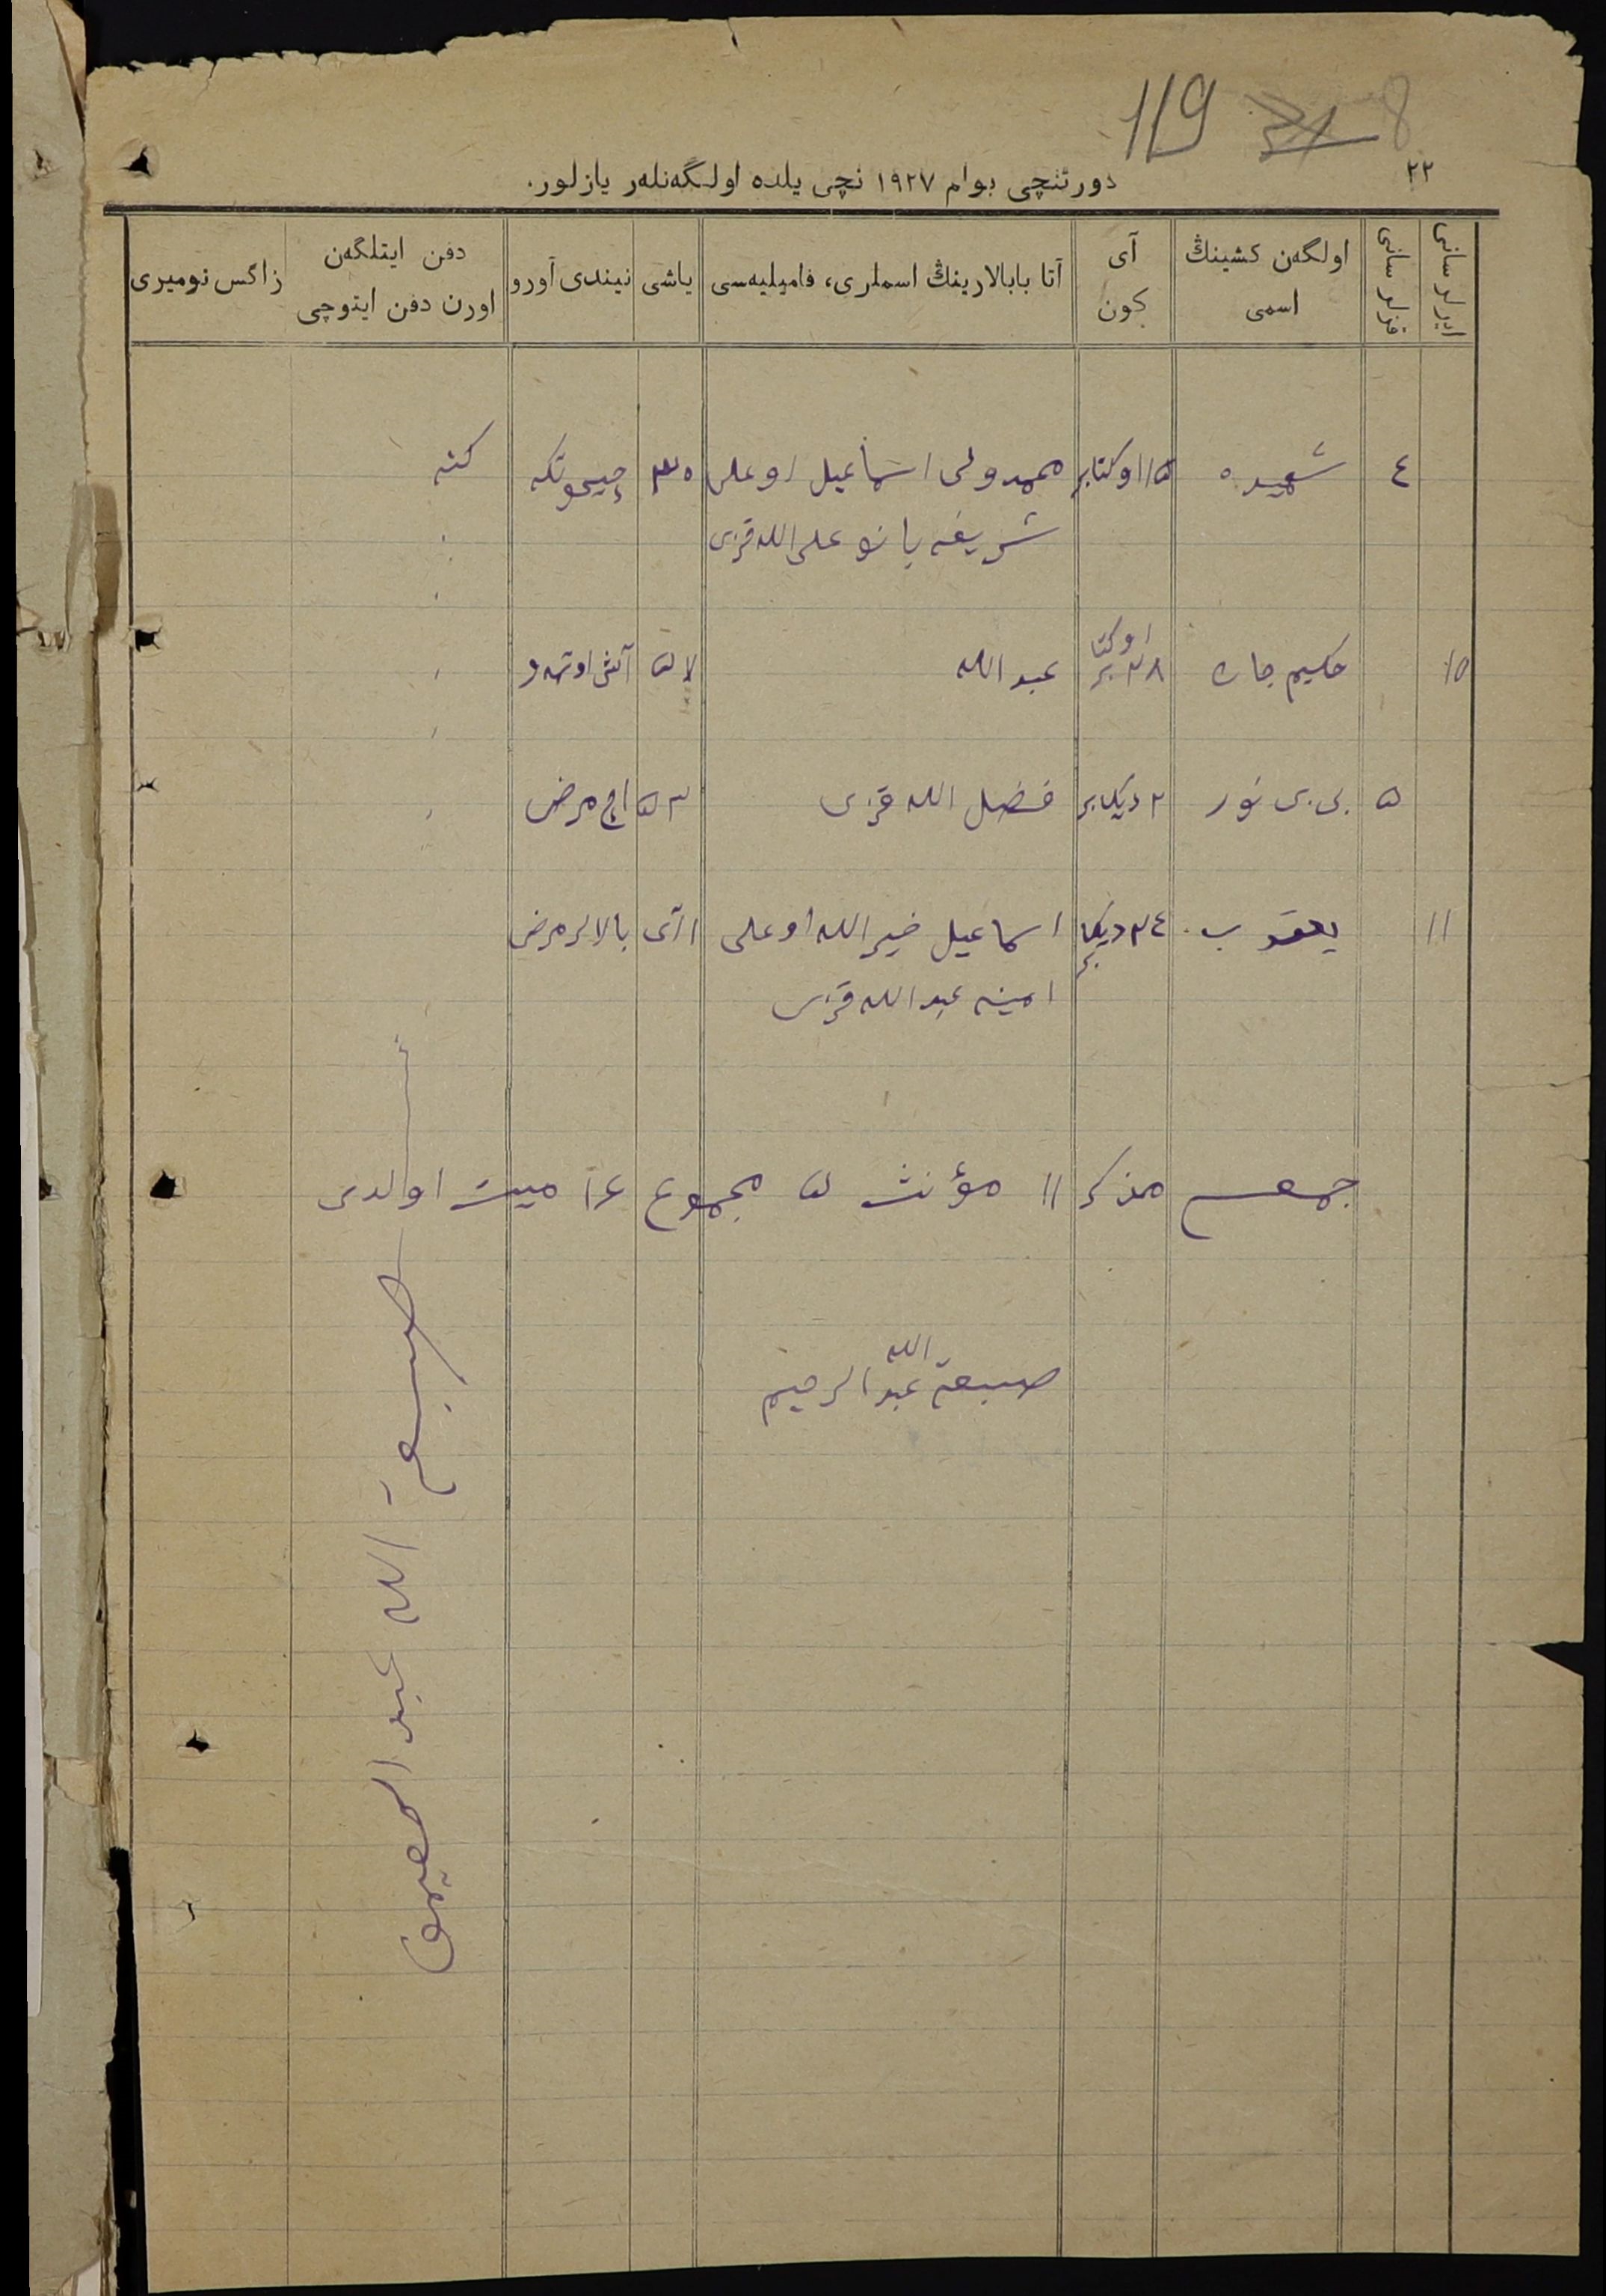 119 31 8
٢٢
دورتنچی بوام ١٩٢٧ نچی یلده اولگه‌نلەر یازلور.
ایرلر سانی
قزلر سانی
اولگەن کشینڭ اسمی
آی کون
آتا بابالارینڭ اسملری، فامیلیەسی
یاشی
نیندی آورو
دفن ایتلگەن اورن دفن ایتوچی
زاگس نومیری
٤ شهیده ١٥ اوکتابر محمدولی اسماعیل اوغلی ٣٥ کته
شریفه بانو علی الله قزی
١٥ حکیم جان ٢٨ اوکتابر عبد الله
٥ بی بی نور ٢ دیکابر فضل الله قزی ٥٣ اچ مرض
١١ یعقوب ٢٤ دیکابر اسماعیل خیرالله اوغلی ١ آی بالالر مرض
امینه عبد الله قزی
جمعی مذکر ١١ مؤنث ٥ مجموع ١٦ میت اولدی
صبغة الله عبد الرحیم
صبغة الله عبد الرحیموف